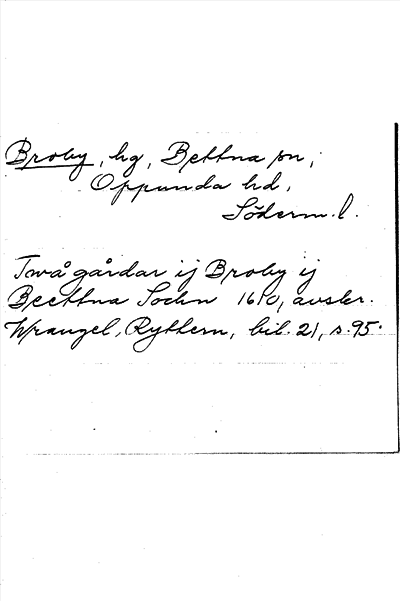 Broby, hg, Bettna sn,
Oppunda hd,
Söderm.l.
Två gårdar ij Broby ij
Beettna Sochn 1610, avskr.
Wrangel, Ryttern, bil. 21, s. 95.